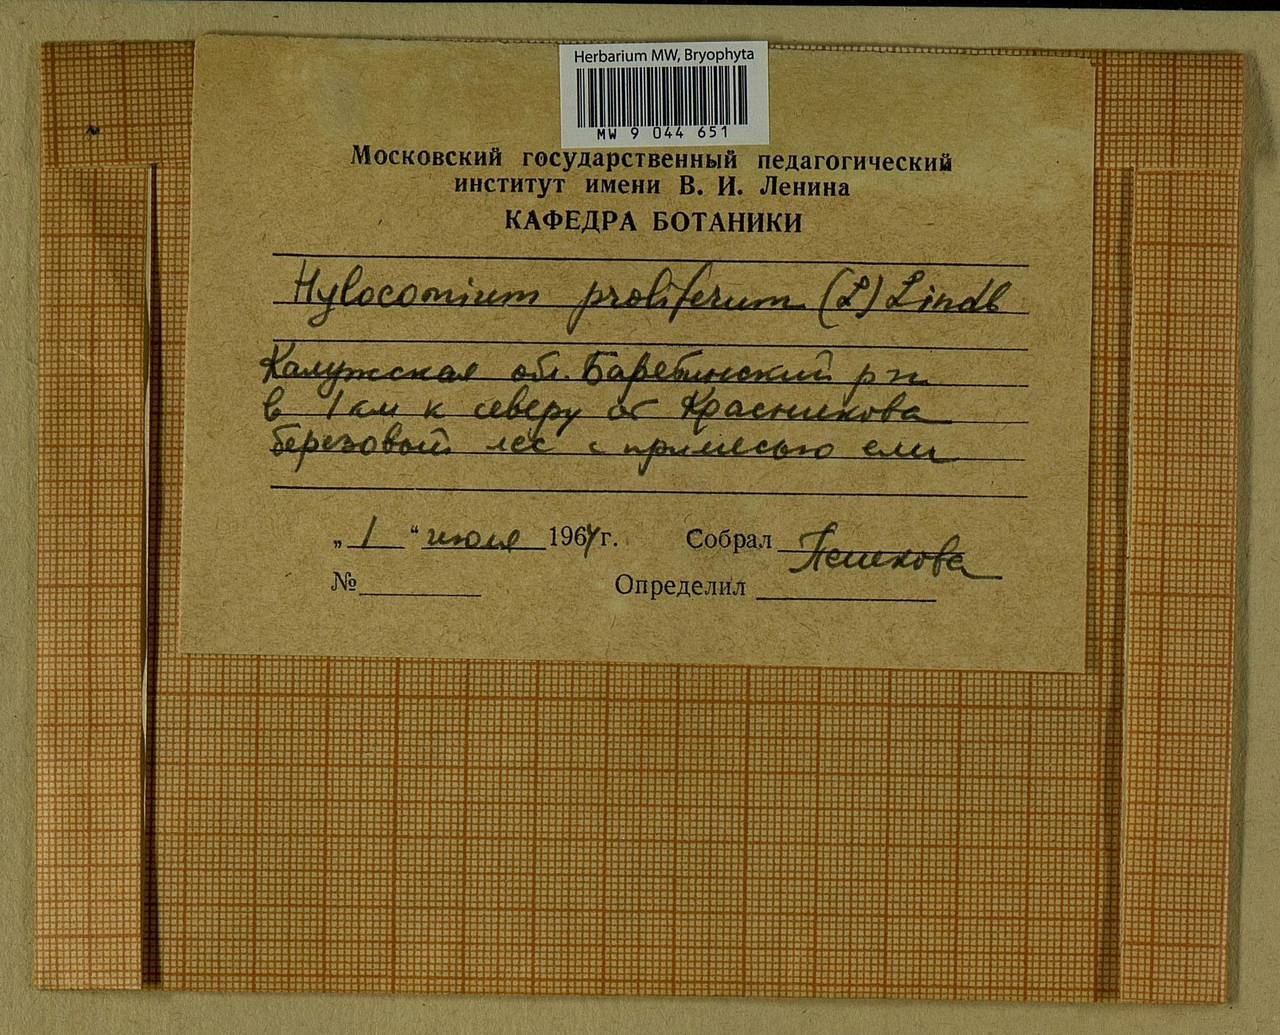 Herbarium MW, Bryophyta
MW 9 044 651
Московский государственный педагогический
институт имени В. И. Ленина
КАФЕДРА БОТАНИКИ
Hylocomium proliferum (L) Lindb
Калужская обл. Барятинский р-н
в 1 км к северу от Красникова
березовый лес с примесью ели
„ 1 “ июля 1964 г. Собрал
№ Определил